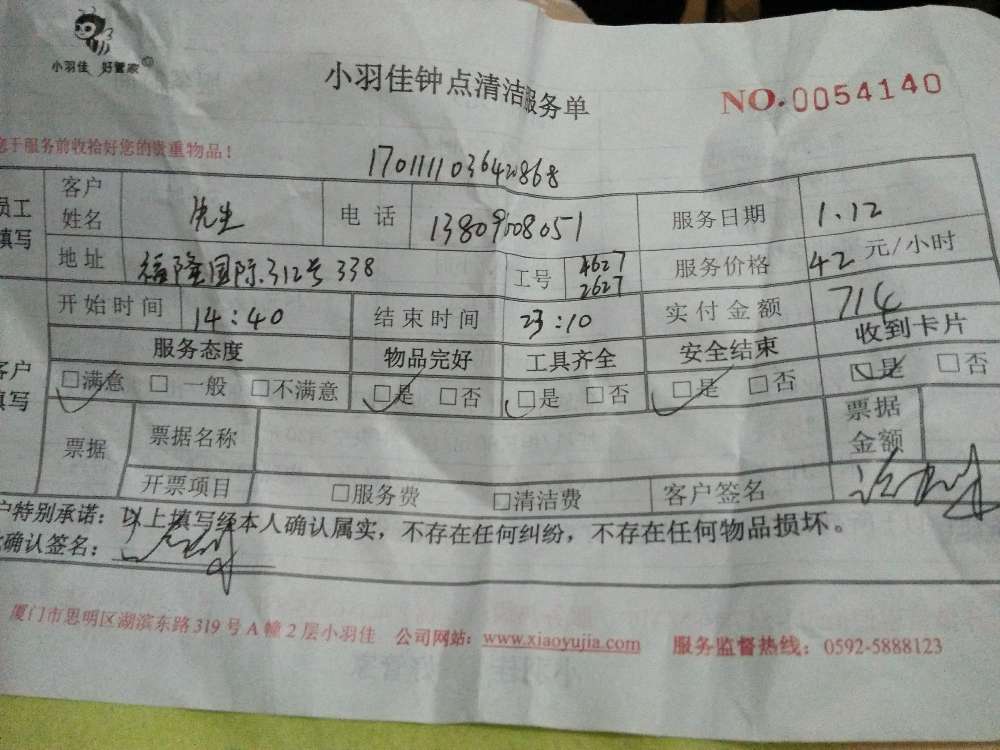 小羽佳 好管家
小羽佳钟点清洁服务单
NO.0054140
您于服务前收拾好您的贵重物品！
员工填写
客户姓名 先生 电话 服务日期 1.12
地址 福隆国际.312号338 工号 4627 2627 服务价格 42 元/小时
开始时间 14:40 结束时间 23:10 实付金额 714
客户填写
服务态度 物品完好 工具齐全 安全结束 收到卡片
□满意 □一般 □不满意 □是 □否 □是 □否 □是 □否 □是 □否
票据 票据名称 票据金额
开票项目 □服务费 □清洁费 客户签名
户特别承诺：以上填写经本人确认属实，不存在任何纠纷，不存在任何物品损坏。
确认签名：
厦门市思明区湖滨东路319号A幢2层小羽佳 公司网站：www.xiaoyujia.com 服务监督热线：0592-5888123